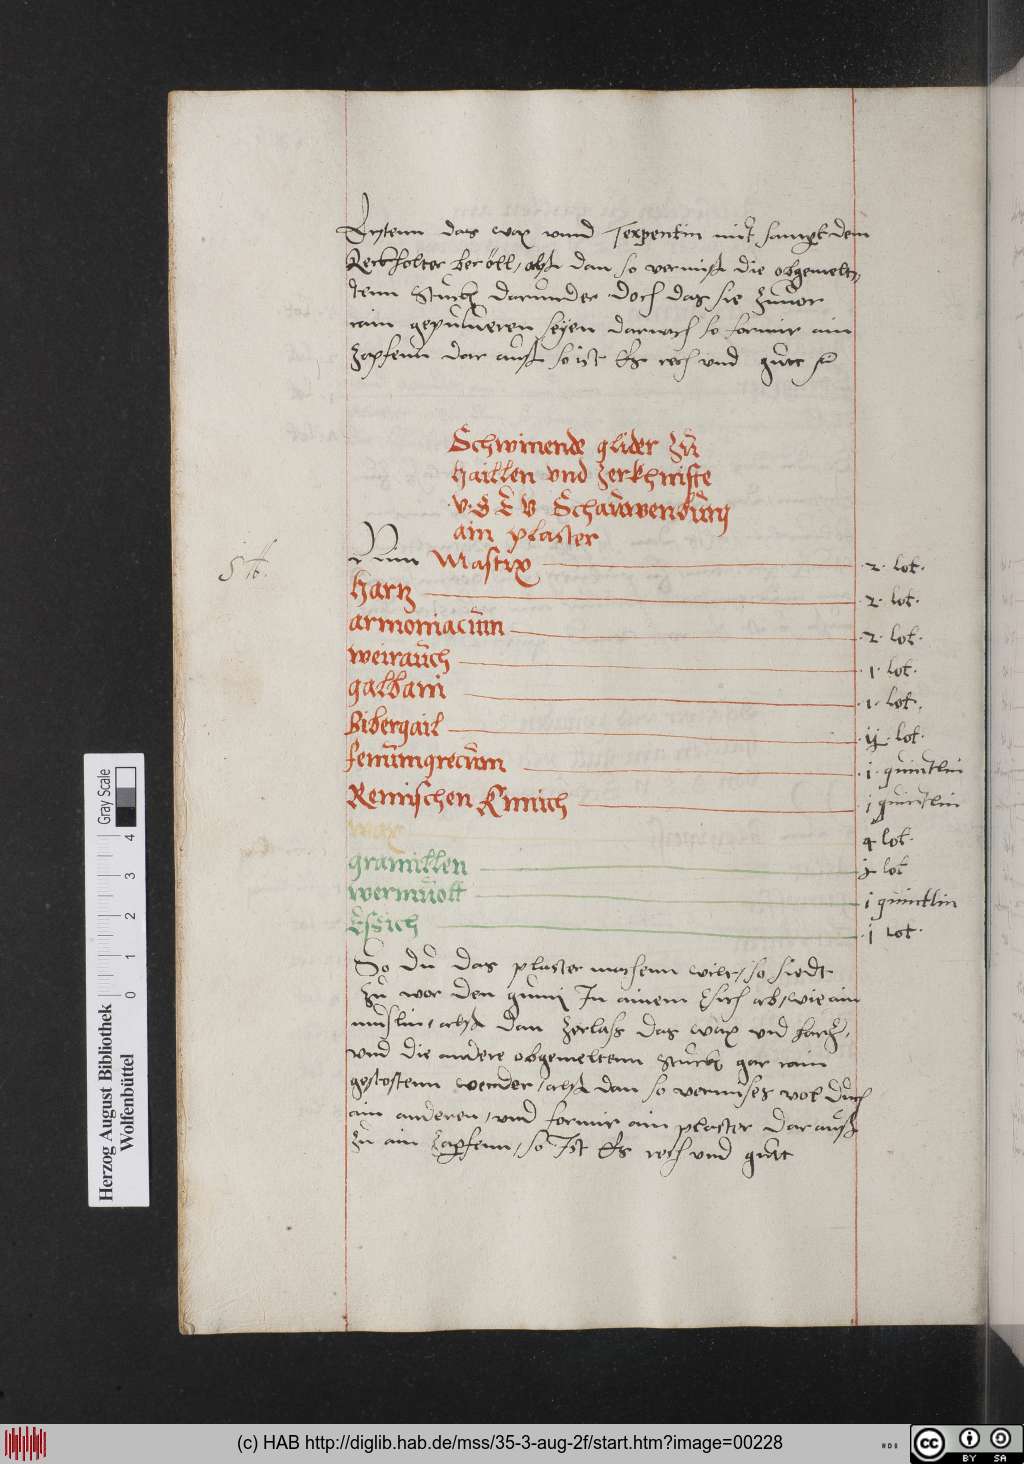 Erstenn das wax vnnd Terpentin mit sampt dem
Reckholter ber öll, alß dan so vermiß die obgemelt,
tenn Stuckh darunder doch das sie zuuor
rain gepulueren seyen darnach so formir ain
zapfenn dar auß so ist Es rech vnd gutt
Schwinende glider zu
haillen vnd zerkhniste
v. S E v Schauwendung
ain plaster
Nim Mastix 2 lot.
hartz 2 lot.
armoniacum 2 lot.
weirauch 1 lot.
galbani 1 lot.
Bibergail ij lot.
fenumgrecum i quintlin
Remischen Kimich i quintlin
wax 4 lot.
gramillen j lot
wermuott i quintlin
Essich j Lot.
So du das plaster machenn wilt, so siedt
zu vor den gumi In ainem Esich ab, wie ain
muslin, alß dan zerlass das wax vnd hartz,
vnd die andere obgemeltenn Stuckh gar rain
gestostenn wender, alß dan so vermisch wol durch
ain anderen, vnd formir ain plaster dar auß
zu ain Zapfenn, so Ist Es rech vnd gutt
Gray Scale
0 1 2 3 4
Herzog August Bibliothek
Wolfenbüttel
(c) HAB http://diglib.hab.de/mss/35-3-aug-2f/start.htm?image=00228
CC BY SA